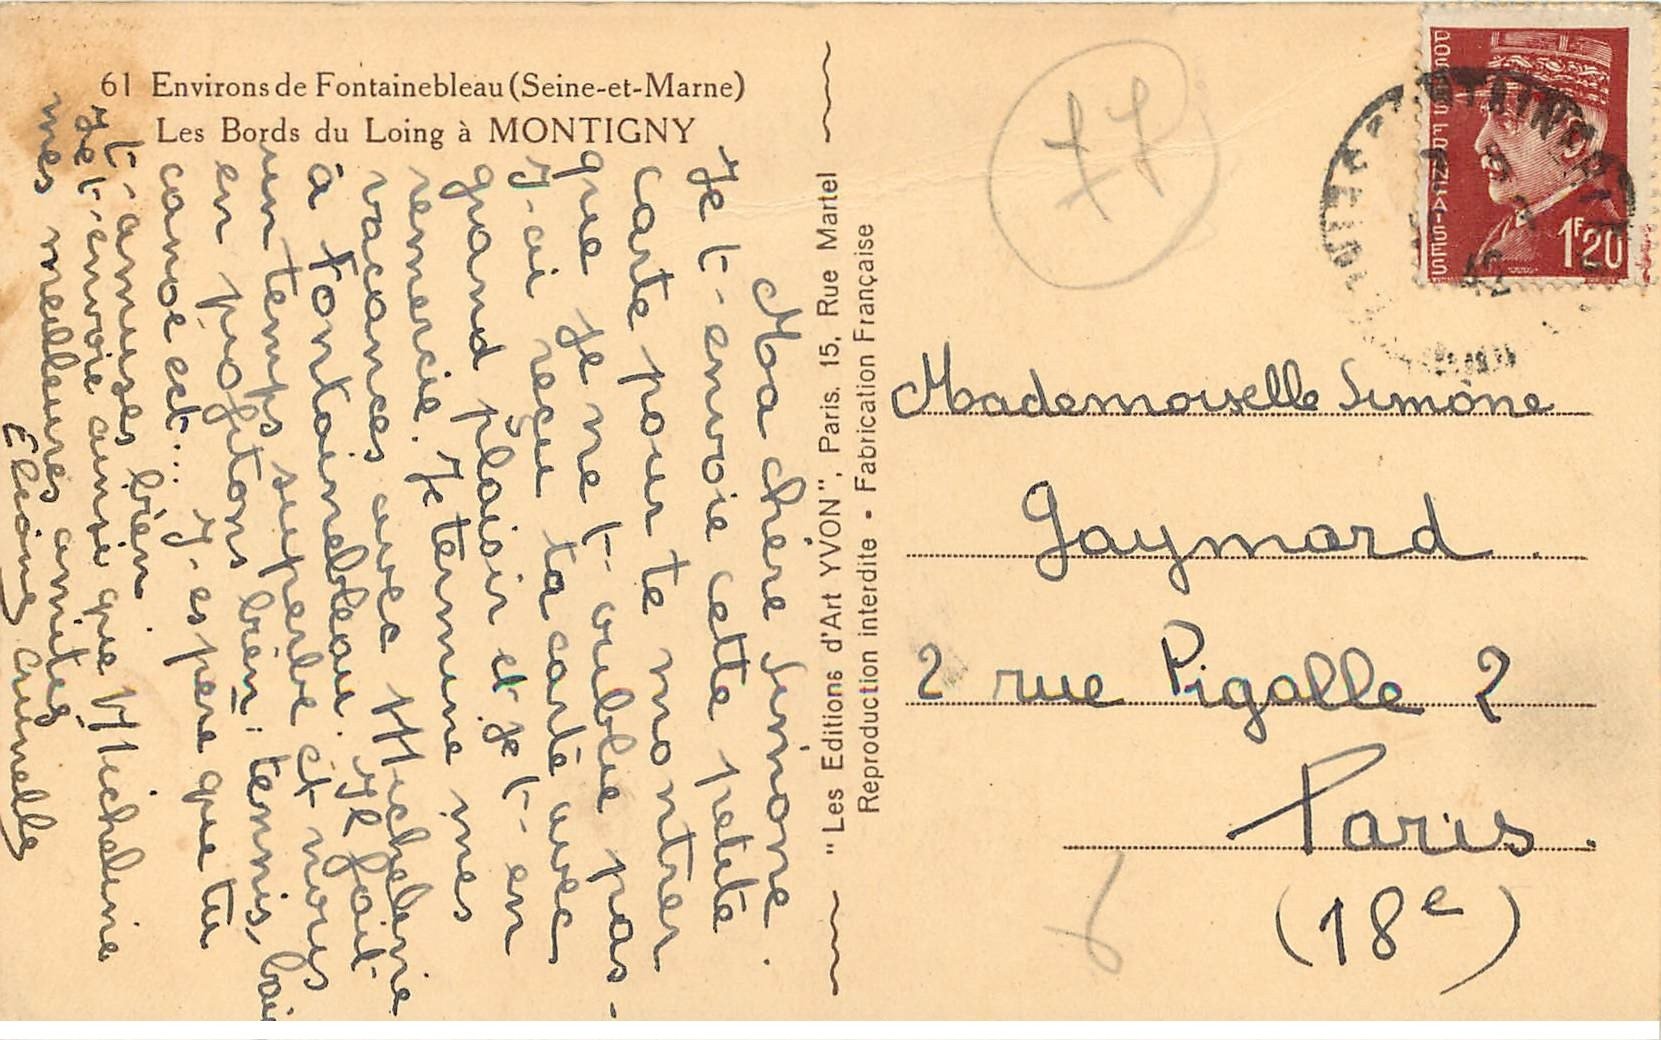 61 Environs de Fontainebleau (Seine-et-Marne)
Les Bords du Loing à MONTIGNY
Ma chère Simone.
Je t-envoie cette petite
carte pour te montrer
que je ne t-oublie pas-
J-ai reçu ta carte avec
grand plaisir et je t-en
remercie. Je termine mes
vacances avec Micheline
à Fontainebleau. Il fait
un temps superbe et nous
en profitons bien: tennis, bai
canoe ect... J-espère que tu
t-amuses bien
Je t-envoie ainsi que Micheline
mes meilleures amitiés
Eliane
"Les Editions d'Art YVON", Paris, 15, Rue Martel
Reproduction interdite - Fabrication Française
77
POSTES FRANÇAISES
1F20
42
Mademoiselle Simone
Gaymard
2 rue Pigalle 2
Paris.
(18e)